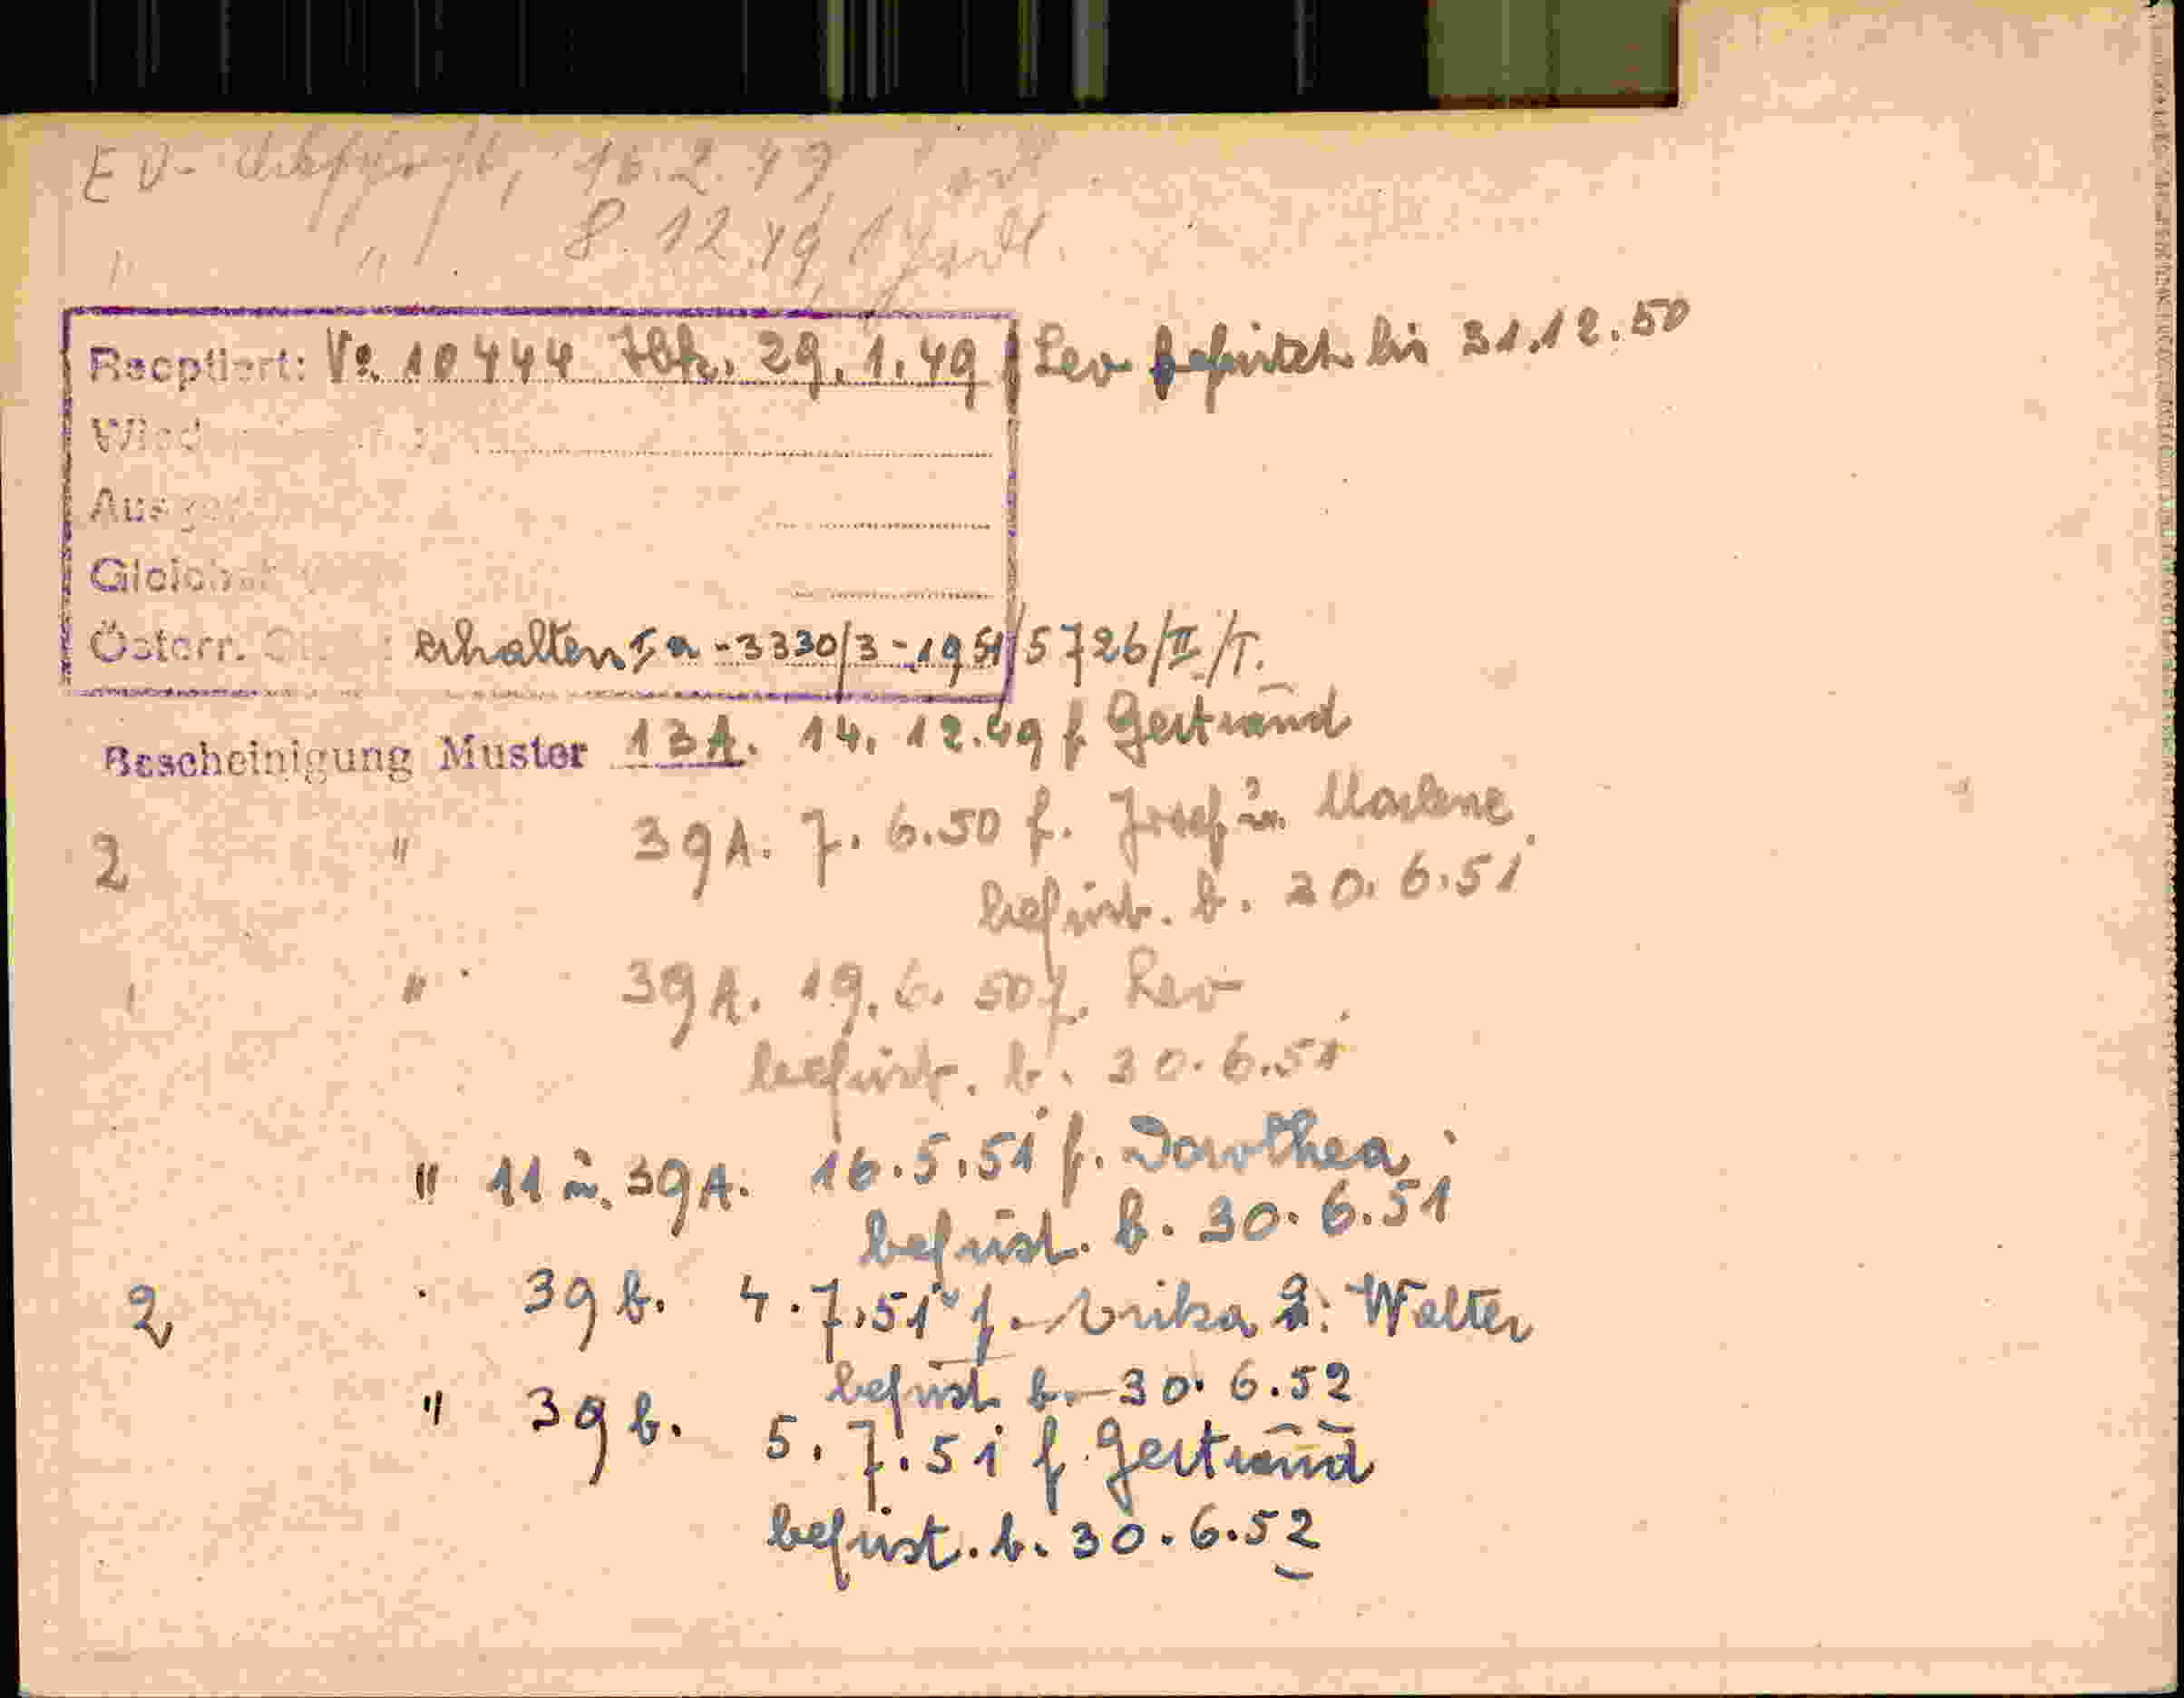 EV- 16.2.49
" " 8.12.49,
Reoptiert: Vo. 10444 Ibk. 29.1.49 Leo befristet bis 31.12.50
Österr. erhalten Ia-3330/3-1951/5726/II/T.
Bescheinigung Muster 13A. 14.12.49 f Gertraud
2 " 39A. 7.6.50 f. Josef u. Marlene
befrist. b. 30.6.51
1 " 39A. 19.6.50 f. Leo
befrist. b. 30.6.51
" 11 u. 39A. 16.5.51 f. Dorothea
befrist. b. 30.6.51
2 " 39b. 4.7.51 f. Erika u. Walter
befrist b. 30.6.52
" 39b. 5.7.51 f. Gertraud
befrist. b. 30.6.52